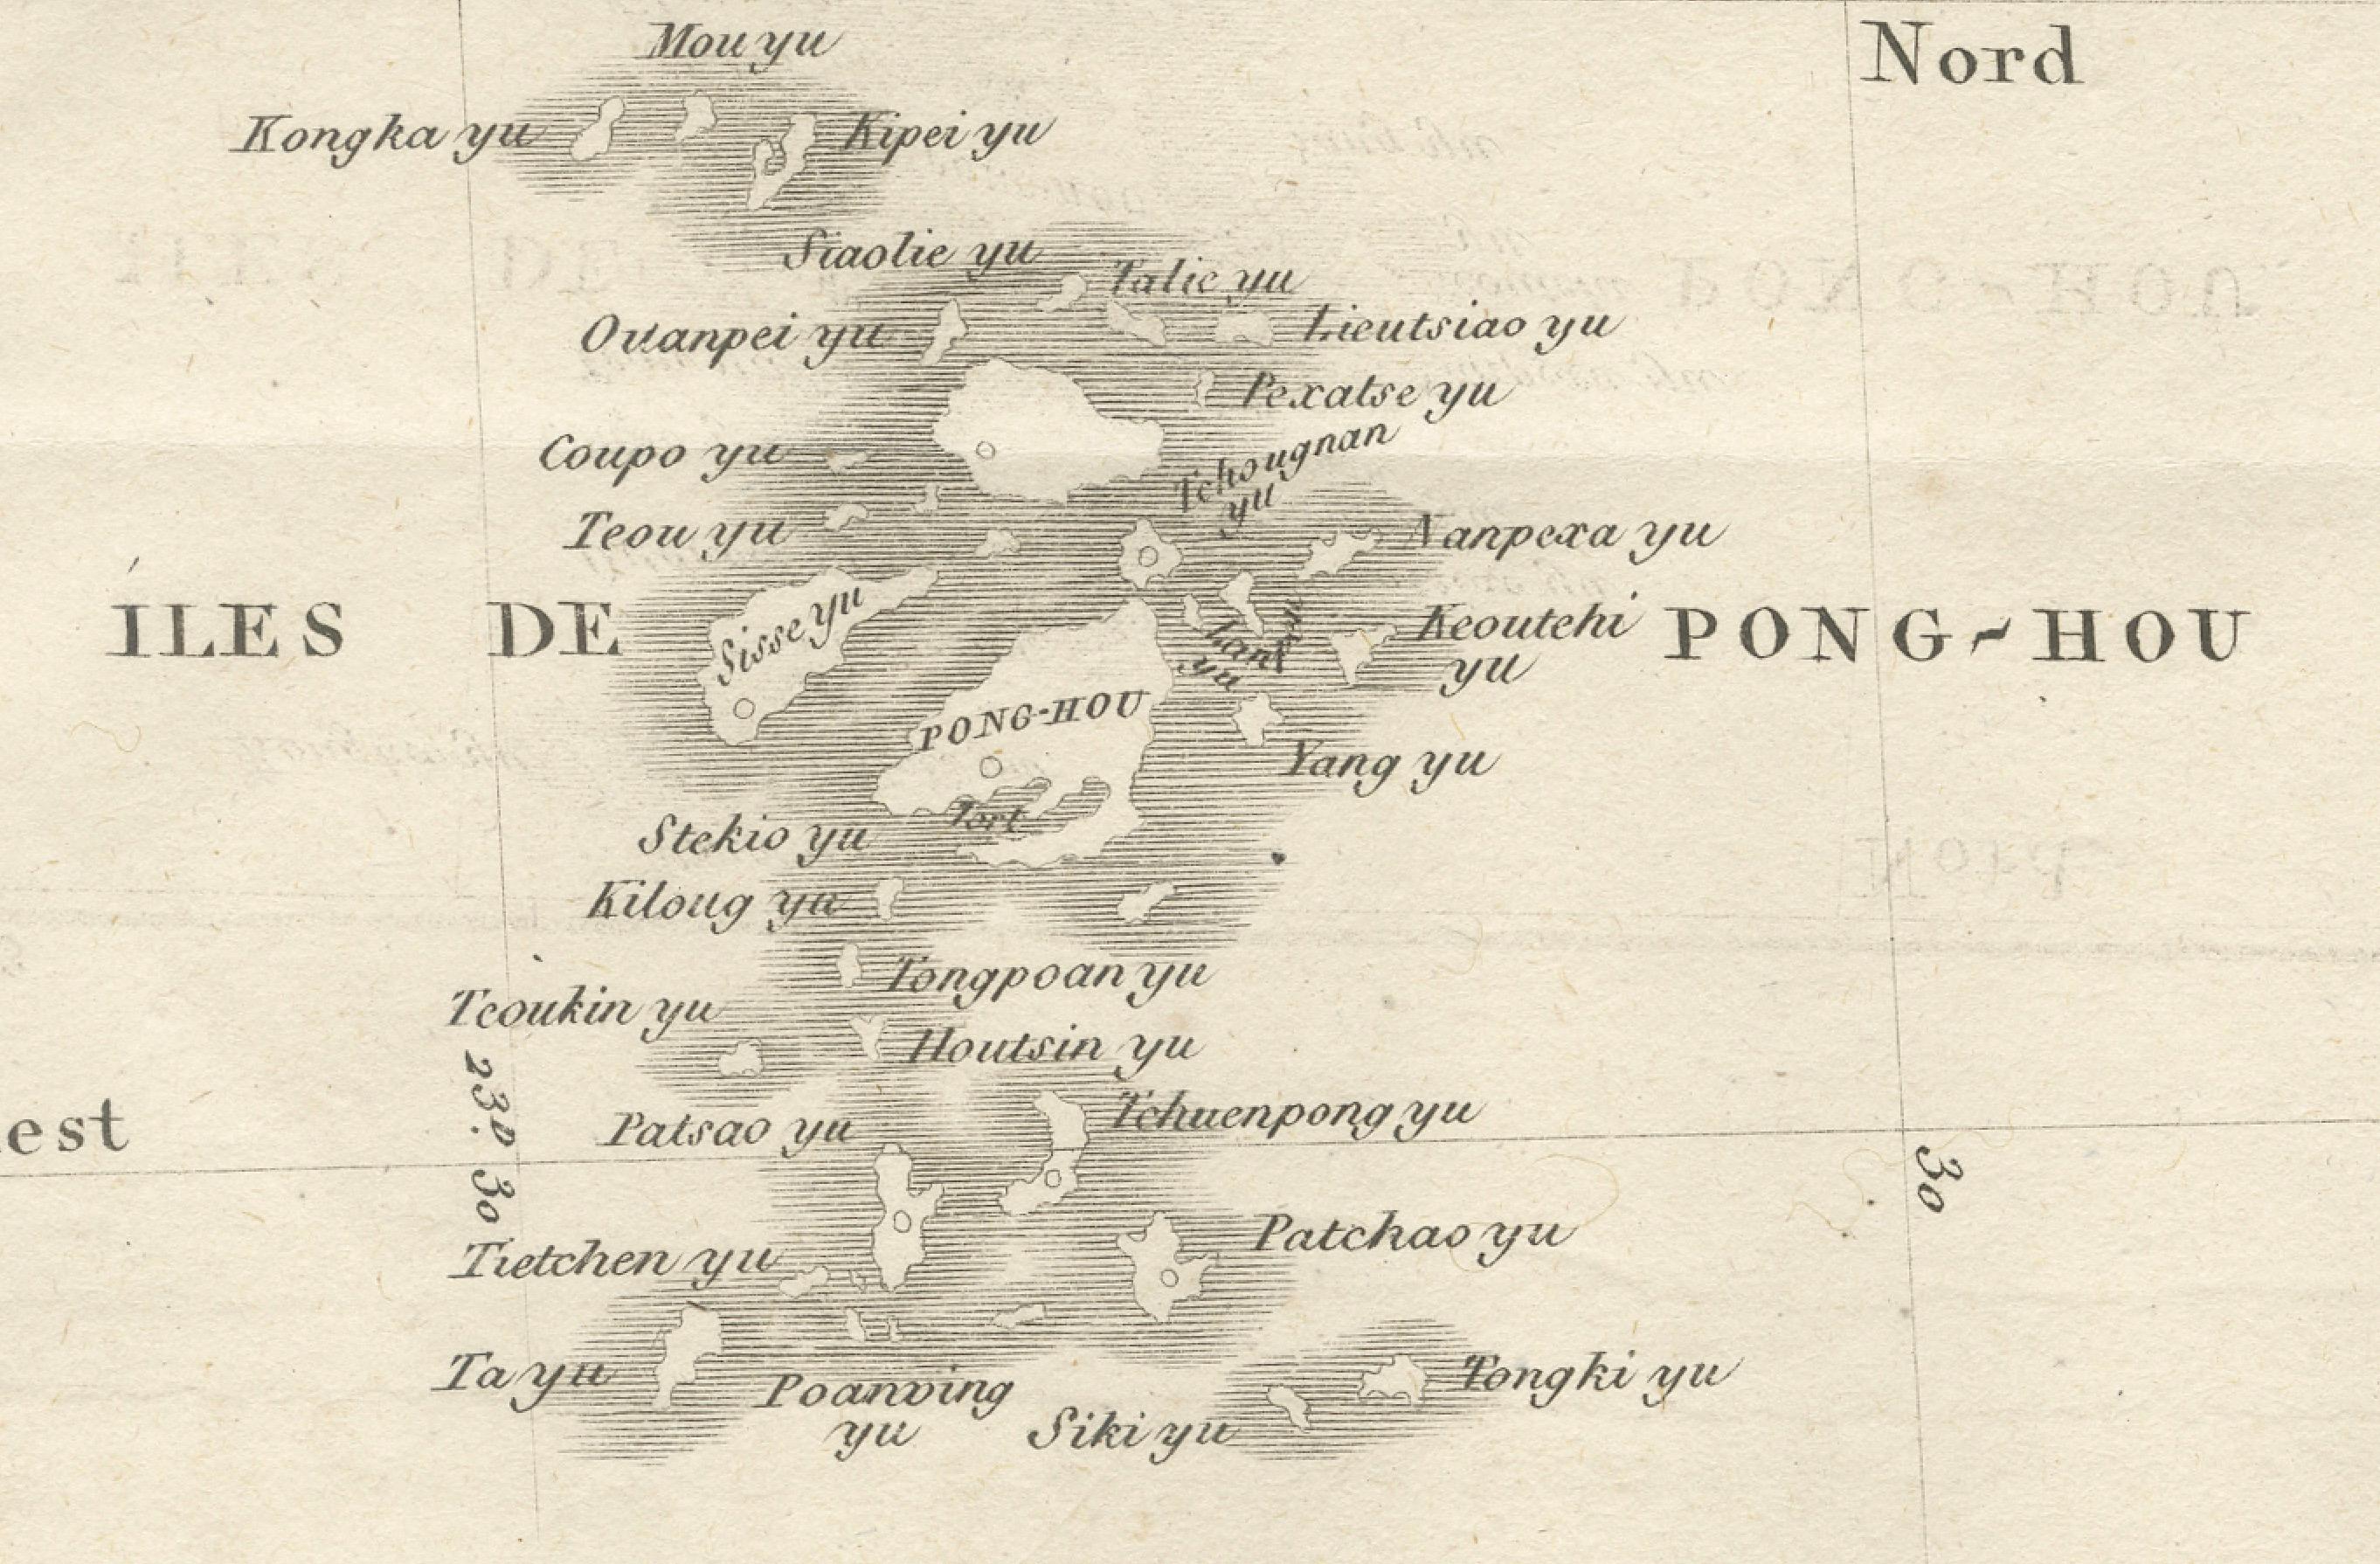 Mou yu
Nord
Kongka yu
Kipei yu
Siaolie yu
Talie yu
Ouanpei yu
Lieutsiao yu
Pexatse yu
Coupo yu
Tchougnan
yu
Teou yu
Nanpexa yu
ÎLES DE PONG-HOU
Sisse yu
yu
Keoutchi
yu
PONG-HOU
Yang yu
Port
Stekio yu
Kiloug yu
Tongpoan yu
Teoukin yu
Houtsin yu
23.D 30
Patsao yu
Tchuenpong yu
est
30
Patchao yu
Tietchen yu
Ta yu
Poanving
yu
Siki yu
Tongki yu